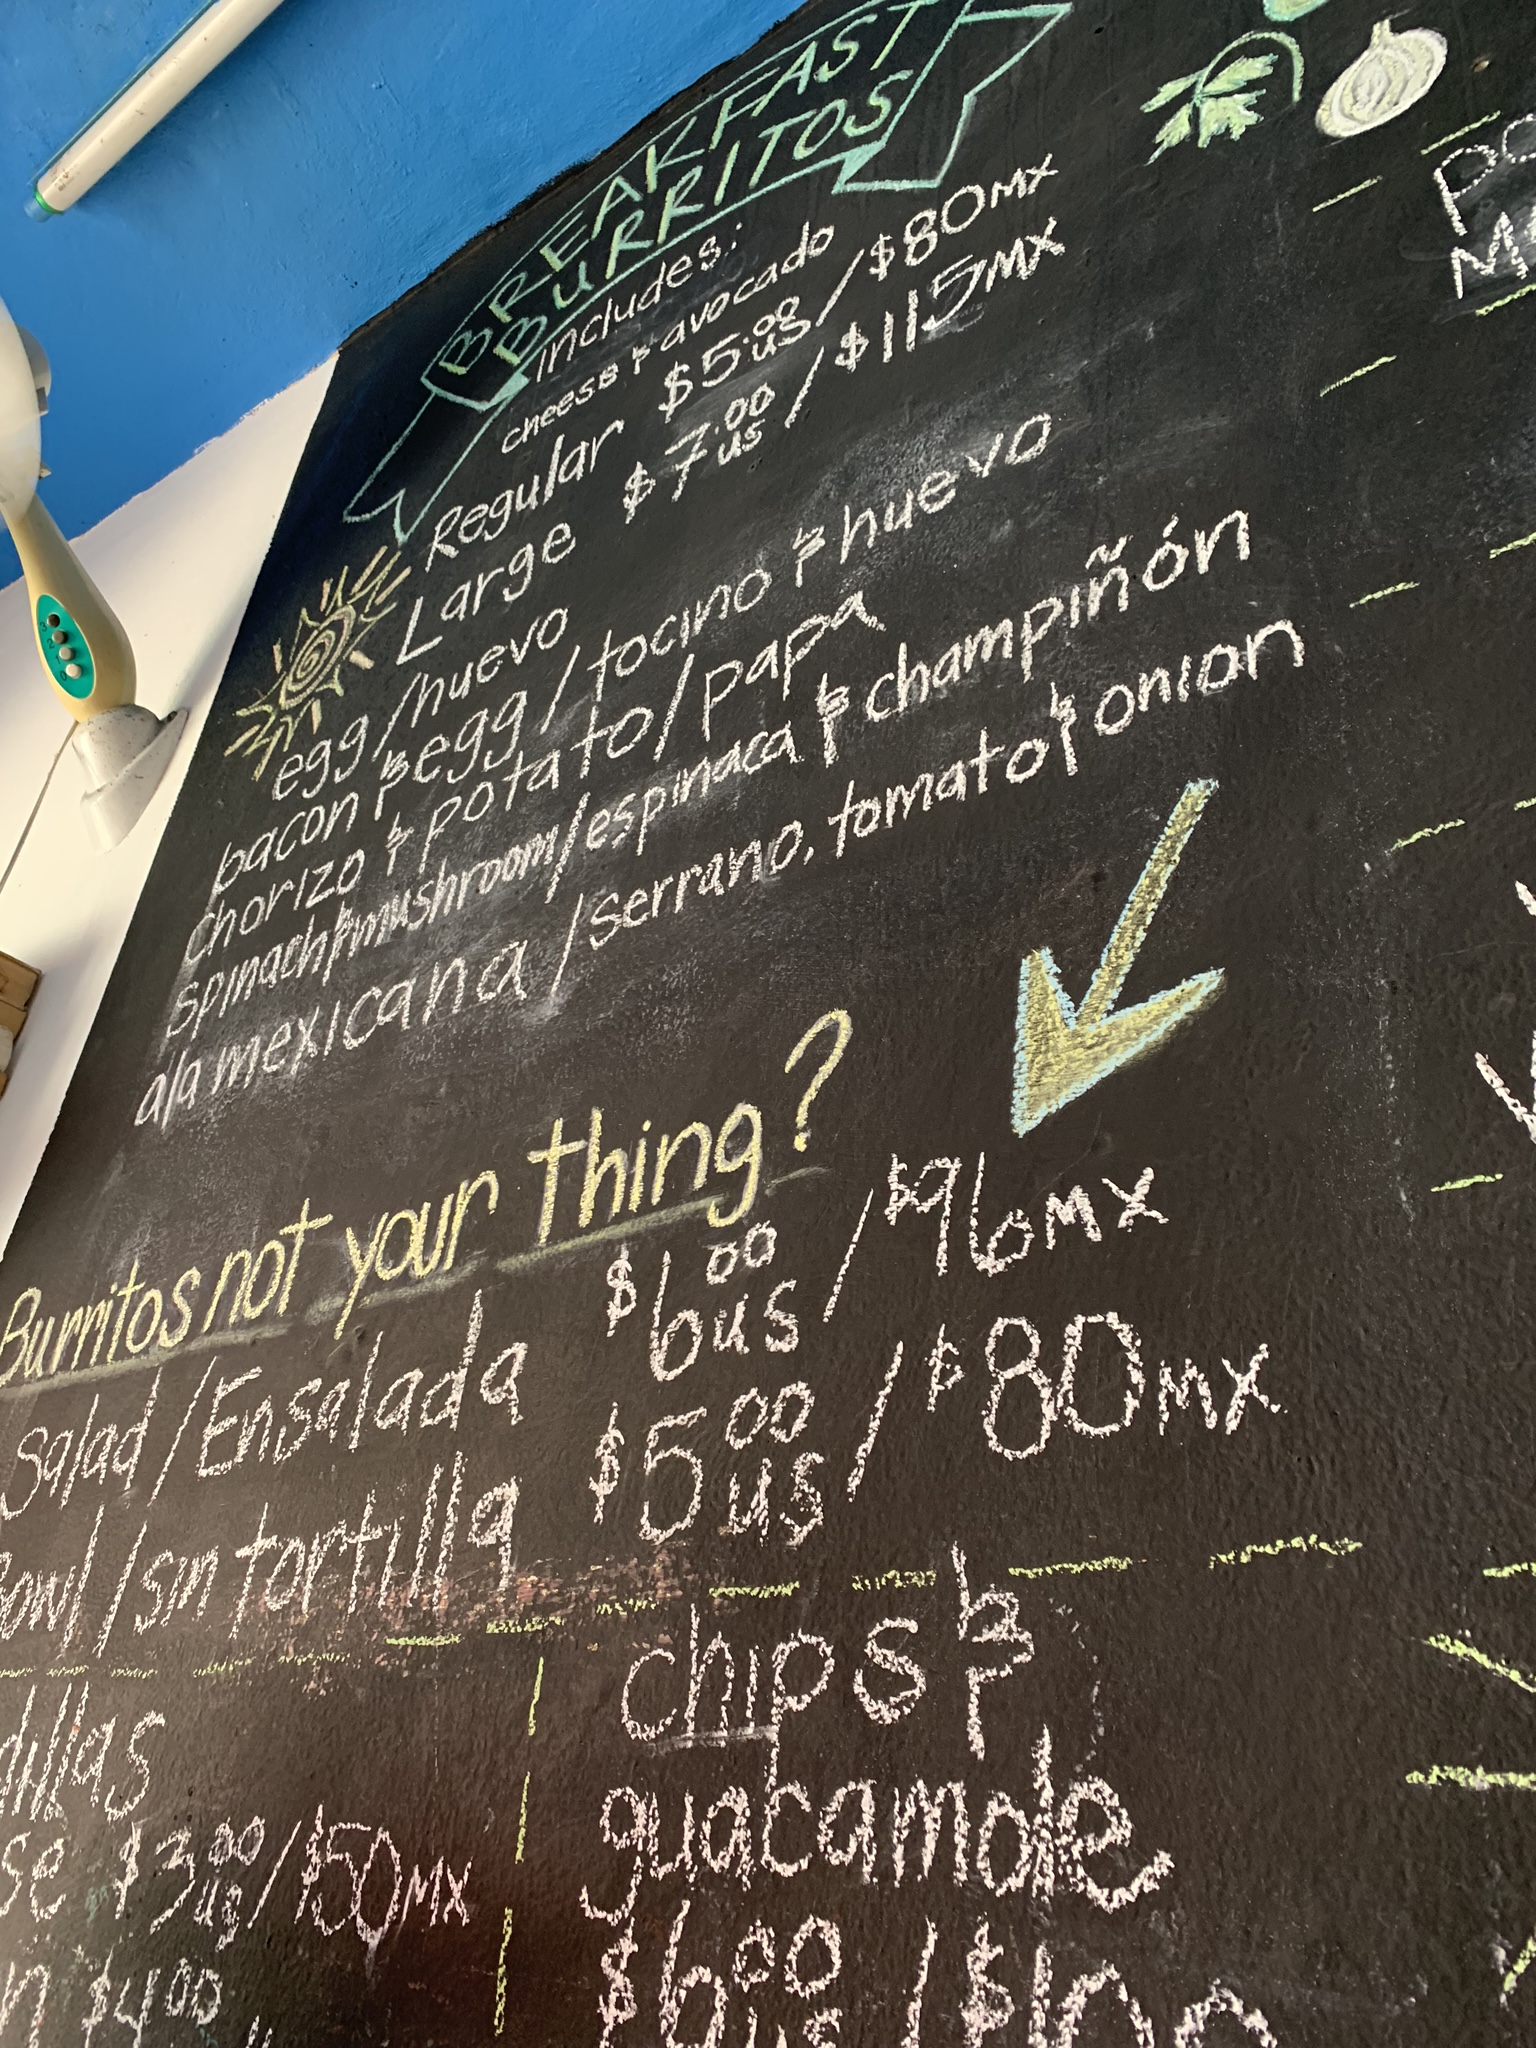 BREAKFAST
BURRITOS
includes:
cheese & avocado
Regular $5.00 us / $80 MX
Large $7.00 us / $115 MX
egg/huevo
bacon & egg / tocino & huevo
chorizo & potato / papa
spinach & mushroom / espinaca & champiñón
ala mexicana / serrano, tomato & onion
Burritos not your thing?
Salad / Ensalada $6.00 us / $96 MX
Bowl / sin tortilla $5.00 us / $80 MX
dillas
se $3.00 us / $50 MX
n $4.00
chips &
guacamole
$6.00 us / $100